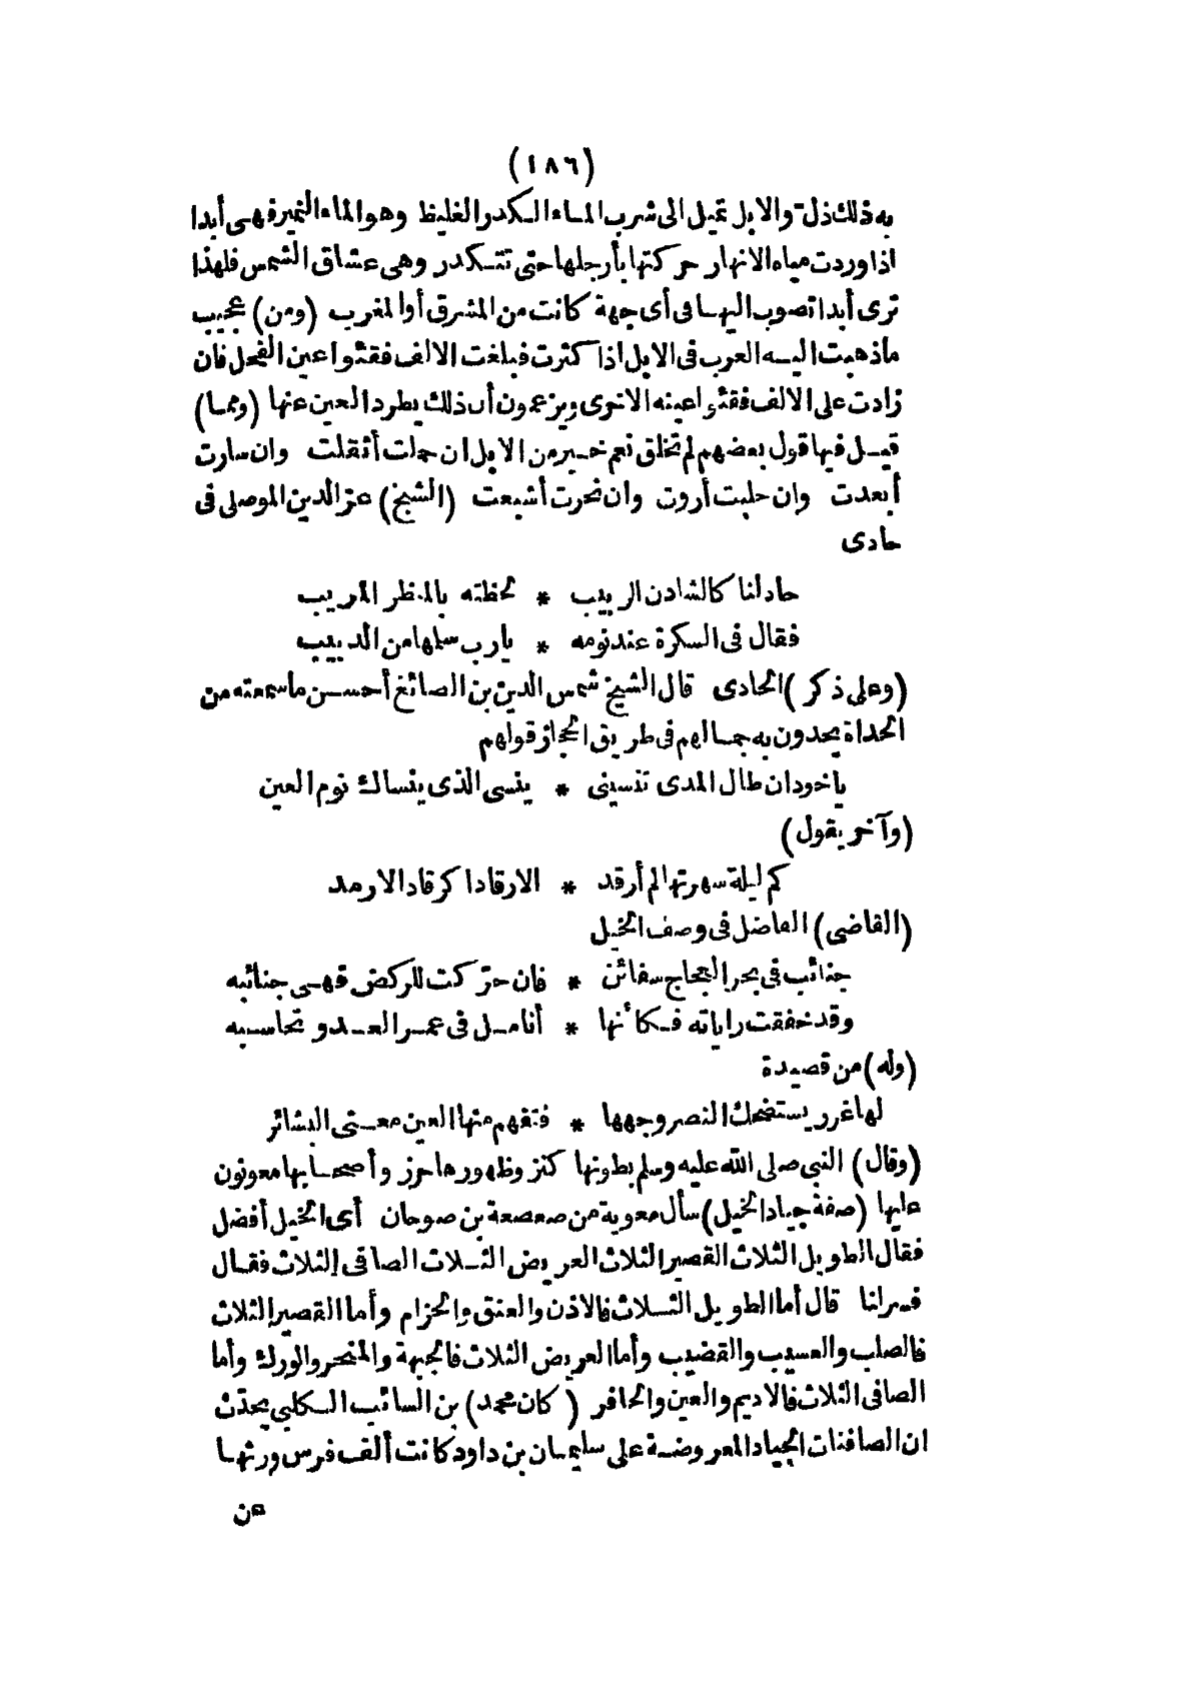 (١٨٦)
به ذلك ذلت والابل تميل الى شرب الماء الكدر الغليظ وهو الماء النمير فهى أبدا
اذا وردت مياه الانهار حركتها بأرجلها حتى تتكدر وهى عشاق الشمس فلهذا
ترى أبدا تصوب اليها فى أى جهة كانت من المشرق أو المغرب (ومن) عجيب
ماذهبت اليه العرب فى الابل اذا كثرت فبلغت الالف فقئوا عين الفحل فان
زادت على الالف فقئوا عينه الاخرى ويزعمون أن ذلك يطرد العين عنها (ومما)
قيل فيها قول بعضهم لم تخلق نعم خير من الابل ان حملت أثقلت وان سارت
أبعدت وان حلبت أروت وان نحرت أشبعت (الشيخ) عز الدين الموصلى فى
حادى
حاد لنا كالشادن الربيب * لحظته بالمنظر المريب
فقال فى السكرة عند نومه * يارب سلها من الدبيب
(وعلى ذكر) الحادى قال الشيخ شمس الدين بن الصائغ أحسن ماسمعته من
الحداة يحدون به جمالهم فى طريق الحجاز قولهم
ياخود ان طال المدى تنسينى * ينسى الذى ينساك نوم العين
(وآخر يقول)
كم ليلة سهرتها لم أرقد * الا رقادا كرقاد الارمد
(القاضى) الفاضل فى وصف الخيل
جنائب فى بحر العجاج سفائن * فان حرّكت للركض فهى جنائبه
وقد خفقت راياته فكأنها * أنامل فى عمر العدو تحاسبه
(وله) من قصيدة
لها غرر يستضحك النصر وجهها * فتفهم منها العين معنى البشائر
(وقال) النبى صلى الله عليه وسلم بطونها كنز وظهورها حرز وأصحابها معونون
عليها (صفة جياد الخيل) سأل معوية من صعصعة بن صوحان أى الخيل أفضل
فقال الطويل الثلاث القصير الثلاث العريض الثلاث الصافى الثلاث فقال
فسر لنا قال أما الطويل الثلاث فالاذن والعنق والحزام وأما القصير الثلاث
فالصلب والعسيب والقضيب وأما العريض الثلاث فالجبهة والمنحر والورك وأما
الصافى الثلاث فالاديم والعين والحافر (كان محمد) بن السائب الكلبى يحدّث
ان الصافنات الجياد المعروضة على سليمان بن داود كانت ألف فرس ورثها
من